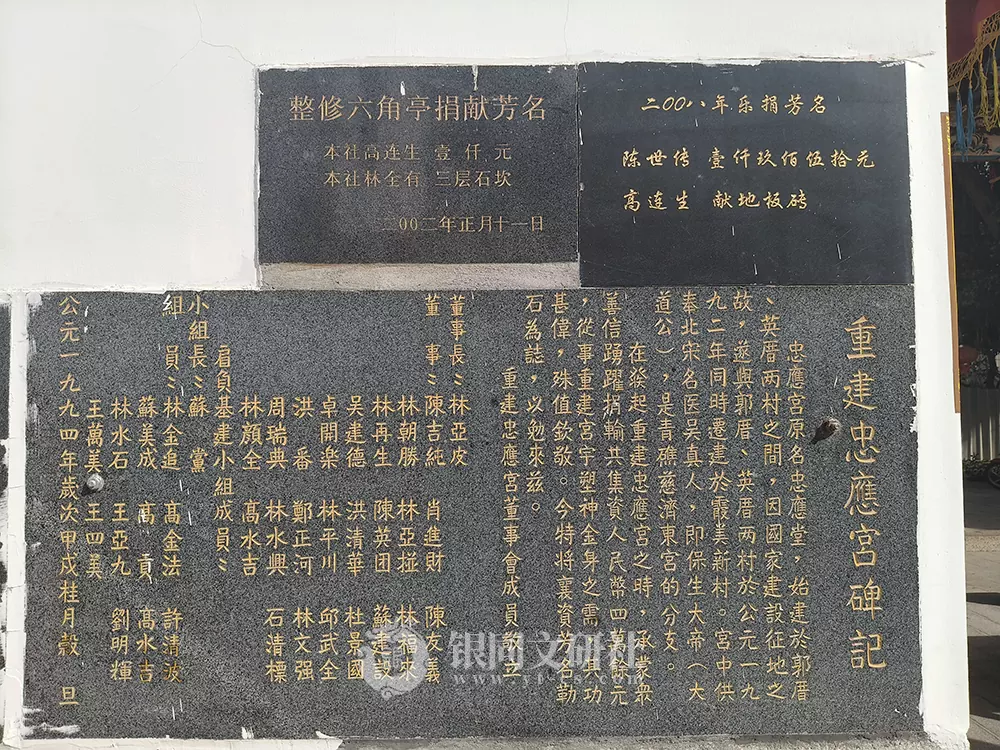 整修六角亭捐献芳名
本社高连生 壹仟元
本社林全有 三层石坎
二00二年正月十一日
二00八年乐捐芳名
陈世传 壹仟玖佰伍拾元
高连生 献地板砖
重建忠應宮碑记
忠應宮原名忠應堂，始建於郭厝
、英厝两村之間，因國家建設征地之
故，遂與郭厝、英厝两村於公元一九
九二年同時遷建於霞美新村。宮中供
奉北宋名医吴真人，即保生大帝（大
道公），是青礁慈濟東宮的分支。
在發起重建忠應宮之時，承蒙衆
善信踴躍捐輸共集資人民幣四萬餘元
，從事重建宮宇塑神金身之需，其功
甚偉，殊值欽敬。今特將襄資芳名勒
石為誌，以勉來兹。
重建忠應宮董事會成員敬立
董事長：林亞皮 肖進財 陳友義
董 事：陳吉純 林亞掽 林福來
林朝勝 陳英团 蘇建設
林再生 洪清華 杜景國
吴建德 林平川 邱武全
卓開楽 鄭正河 林文强
洪 番 林水興 石清標
周瑞典 髙水吉
林顔全
肩負基建小組成員：
小組長：蘇 黨
組 員：林金追 髙金法 許清波
蘇美成 髙 貢 髙水吉
林水石 王亞九 劉明輝
王萬美 王四美
公元一九九四年歲次甲戌桂月穀旦
银同文研社
www.yt-s.cn